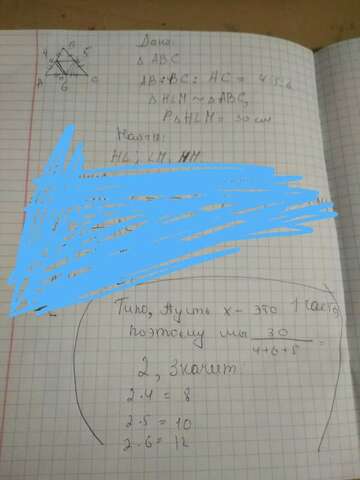 Дано:
△ABC
AB:BC:AC = 4:5:6
△HLM ~ △ABC,
P△HLM = 30 см
Найти:
HL; LM, HM
4 B 5
A 6 C
Типо, пусть x - это 1 часть,
поэтому мы 30/4+6+5 =
2, Значит:
2·4 = 8
2·5 = 10
2·6 = 12